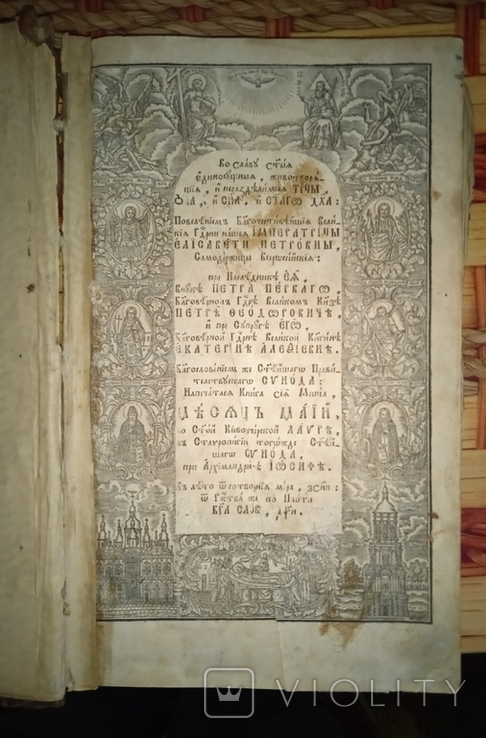 Во славу ст҃ыя
единосꙋщныя, животворѧ-
щїѧ, и нераздѣлимыѧ ТРЦ҃Ы
Ѻ҃ЦА, и СН҃А, и СТ҃АГѠ ДХ҃А:
Повелѣнїемъ Благочестивѣйшїѧ Вели-
кїѧ Гдрни нашеѧ ІМПЕРАТРІЦЫ
ЕЛІСАВЕТЫ ПЕТРОВНЫ,
Самодержицы Всерѡссїйскїѧ:
при Наслѣдникѣ ЕѦ,
Внꙋкѣ ПЕТРА ПЕРВАГѠ,
Благовѣрномъ Гдрѣ Великомъ Кнзѣ
ПЕТРѢ ѲЕОДОРОВИЧѢ,
и при Сꙋпрꙋгѣ ЕГѠ,
Благовѣрной Гдрнѣ Великой Кнгинѣ
ЕКАТЕРІНѢ АЛЕѮІЕВНѢ.
Благословенїемъ же Ст҃ѣйшагѡ Прави-
телствꙋющагѡ СѴНОДА:
Напечатасѧ Книга сїѧ Минїа,
МѢСѦЦЪ МАІЙ,
во Ст҃ой Кїевопечерской ЛАУРѢ,
въ Ставропигїи тогѡжде Ст҃ѣй-
шагѡ СѴНОДА,
при Архімандрітѣ ІѠСИФѢ.
въ лѣто ѿ сотворенїѧ мїра,
ѿ Ржтва же по Плоти
БГ҃А СЛОВА,
VIOLITY